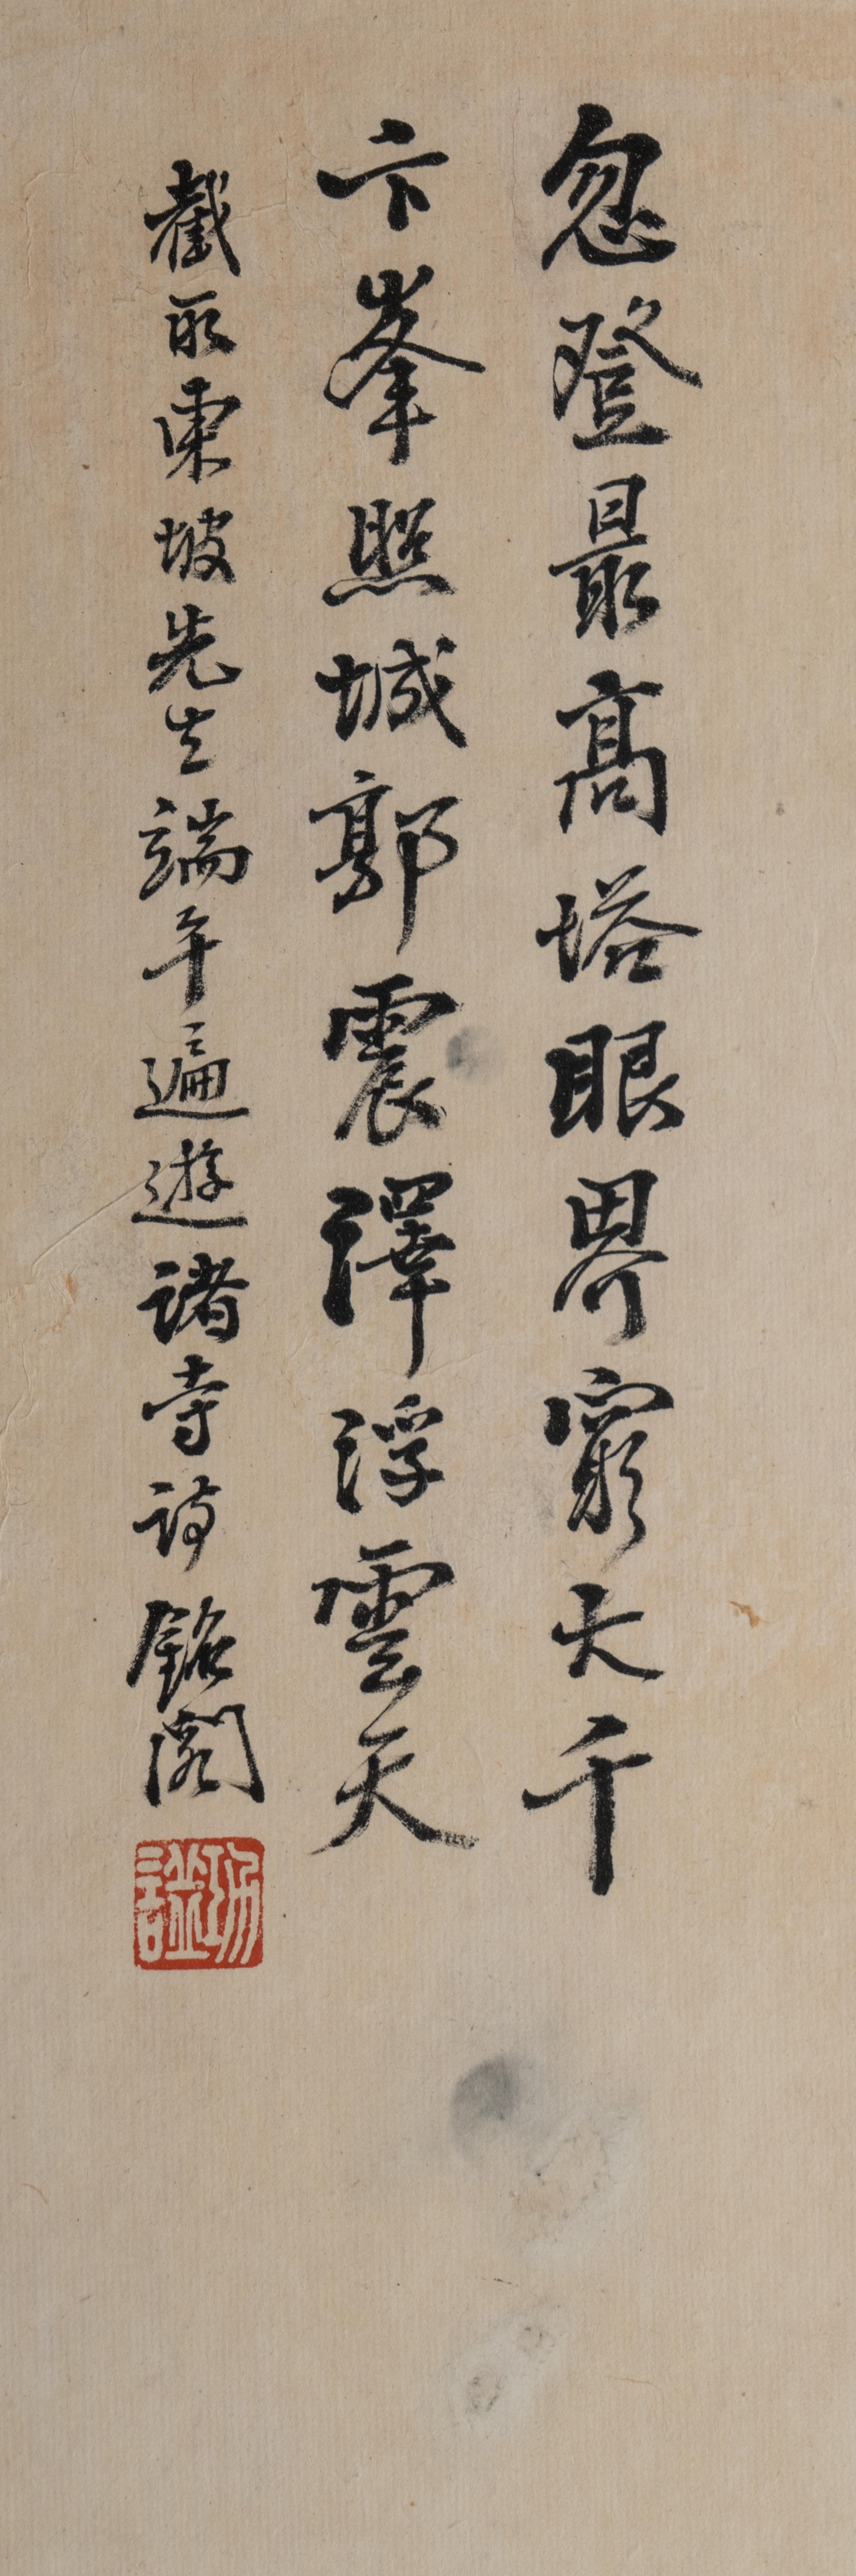 忽登最高塔眼界窮大千
卞峯照城郭震澤浮雲天
截取東坡先生端午遍遊諸寺詩 銘閣